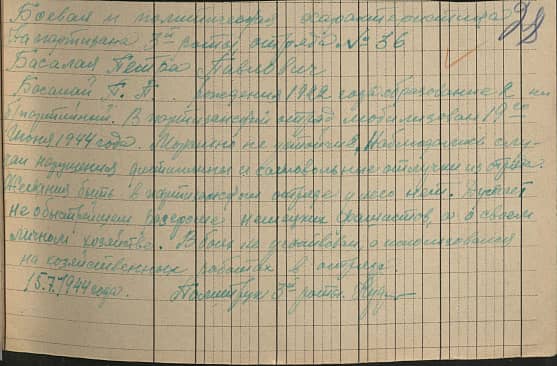 Боевая и политическая характеристика
На партизана 3ей роты отряда № 36
Басалая Петра Павлович
Басалай П. П. рождения 1922 года образование 2 кл
б/партийный. В партизанский отряд мобилизован 19го
Июня 1944 года. Морально не устойчив, Наблюдались слу-
чаи нарушения дисциплины и самовольные отлучки из отряда.
Желания быть в партизанском отряде у него нет. Думает
не об немецких фашистов, а о своем
личном хозяйстве. В боях не участвовал, а использовался
на хозяйственных работах в отряде
15.7.1944 года. Политрук 3ей роты